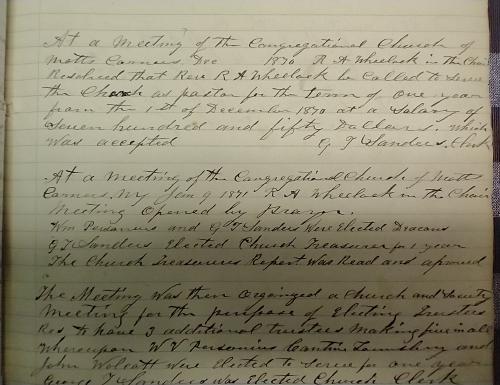 At a Meeting of the Congregational Church of
Motts Corners, Dec 1870 R A Wheelock in the Chair
Resolved that Rev R A Wheelock be Called to Serve
the Church as pastor for the term of one year
from the 1st of December 1870 at a Salary of
Seven hundred and fifty Dollars. Which
was accepted G T Sanders, Clerk
At a Meeting of the Congregational Church of Motts
Corners, NY Jan 9 1871 R A Wheelock in the Chair
Meeting Opened by Prayer.
Wm Personius and G T Sanders Were Elected Deacons
G T Sanders Elected Church Treasurer for 1 year
The Church Treasurers Report Was Read and approved
The Meeting Was then Organized a Church and Society
Meeting for the purpose of Electing Trustees
Res to have 3 additional trustees Making five in all
Whereupon W V Personius Lounsbery and
John Wolcott were Elected to Serve for one year
George T Sanders was Elected Church Clerk